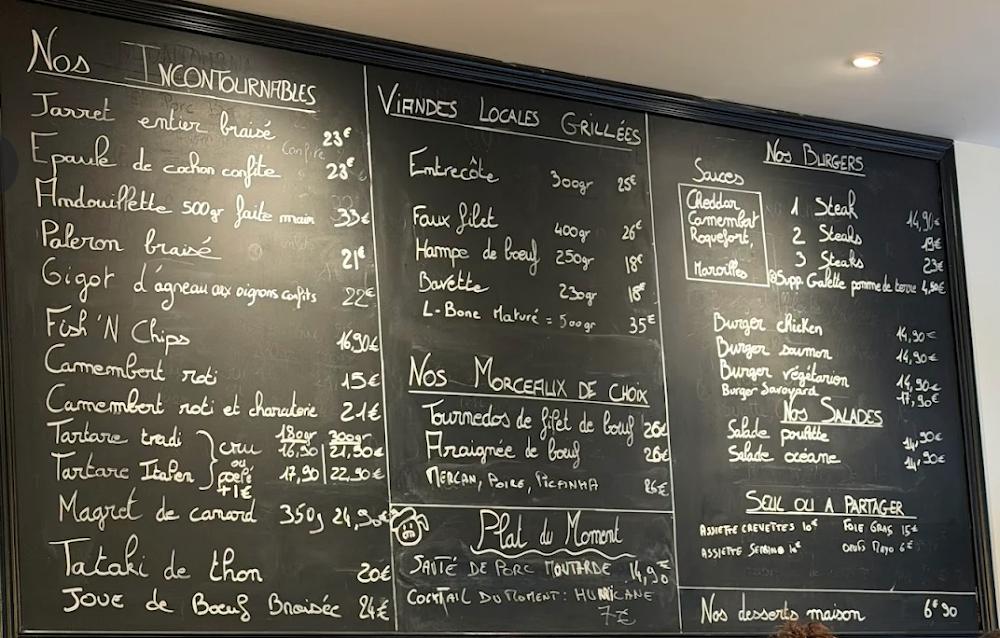 Nos Incontournables
Jarret entier braisé 23€
Epaule de cochon confite 23€
Andouillette 500gr faite main 33€
Paleron braisé 21€
Gigot d'agneau aux oignons confits 22€
Fish 'N Chips 16,90€
Camembert roti 15€
Camembert roti et charcuterie 21€
180gr 300gr
Tartare tradi cru 16,90 21,90€
ou
Tartare Italien poêlé 17,90 22,90€
+1€
Magret de canard 350g 24,90€
Tataki de thon 20€
Joue de Boeuf Braisée 24€
Viandes Locales Grillées
Entrecôte 300gr 25€
Faux filet 400gr 26€
Hampe de boeuf 250gr 18€
Bavette 230gr 18€
L-Bone Maturé = 500gr 35€
Nos Morceaux de choix
Tournedos de filet de boeuf 26€
Araignée de boeuf 26€
Merlan, Poire, Picanha 26€
Plat du Moment
Sauté de Porc Moutarde 14,90€
Cocktail du Moment : Hurricane
7€
Nos Burgers
Sauces
Cheddar
Camembert
Roquefort,
Maroilles
1 Steak 14,90€
2 Steaks 19€
3 Steaks 23€
Supp. Galette pomme de terre 4,50€
Burger chicken 14,90€
Burger saumon 14,90€
Burger végétarien 14,90€
Burger Savoyard 17,90€
Nos Salades
Salade poulette 14,90€
Salade océane 14,90€
Seul ou a Partager
Assiette crevettes 10€ Foie Gras 15€
Assiette Serrano 10€ Oeufs Mayo 6€
Nos desserts maison 6€90